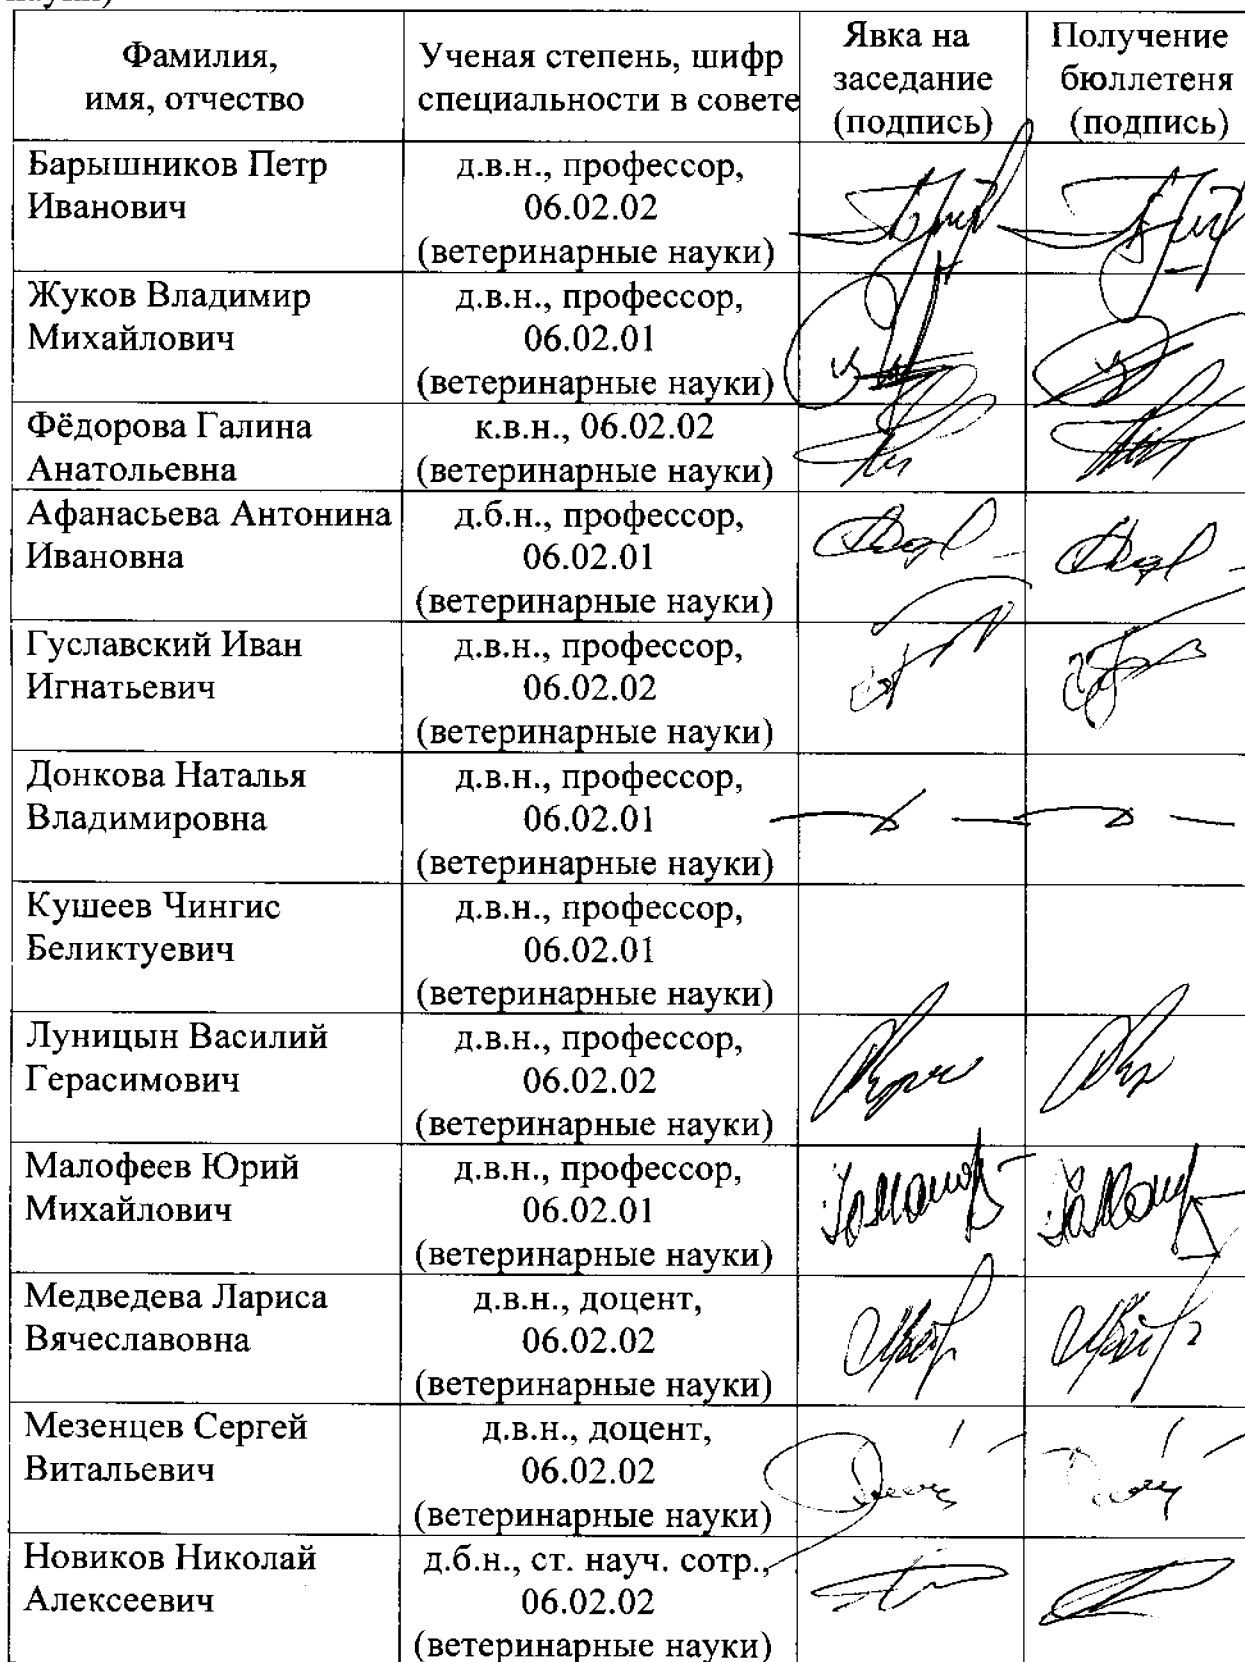 Фамилия,
имя, отчество
Ученая степень, шифр
специальности в совете
Явка на
заседание
(подпись)
Получение
бюллетеня
(подпись)
Барышников Петр
Иванович
д.в.н., профессор,
06.02.02
(ветеринарные науки)
Жуков Владимир
Михайлович
д.в.н., профессор,
06.02.01
(ветеринарные науки)
Фёдорова Галина
Анатольевна
к.в.н., 06.02.02
(ветеринарные науки)
Афанасьева Антонина
Ивановна
д.б.н., профессор,
06.02.01
(ветеринарные науки)
Гуславский Иван
Игнатьевич
д.в.н., профессор,
06.02.02
(ветеринарные науки)
Донкова Наталья
Владимировна
д.в.н., профессор,
06.02.01
(ветеринарные науки)
Кушеев Чингис
Беликтуевич
д.в.н., профессор,
06.02.01
(ветеринарные науки)
Луницын Василий
Герасимович
д.в.н., профессор,
06.02.02
(ветеринарные науки)
Малофеев Юрий
Михайлович
д.в.н., профессор,
06.02.01
(ветеринарные науки)
Медведева Лариса
Вячеславовна
д.в.н., доцент,
06.02.02
(ветеринарные науки)
Мезенцев Сергей
Витальевич
д.в.н., доцент,
06.02.02
(ветеринарные науки)
Новиков Николай
Алексеевич
д.б.н., ст. науч. сотр.,
06.02.02
(ветеринарные науки)